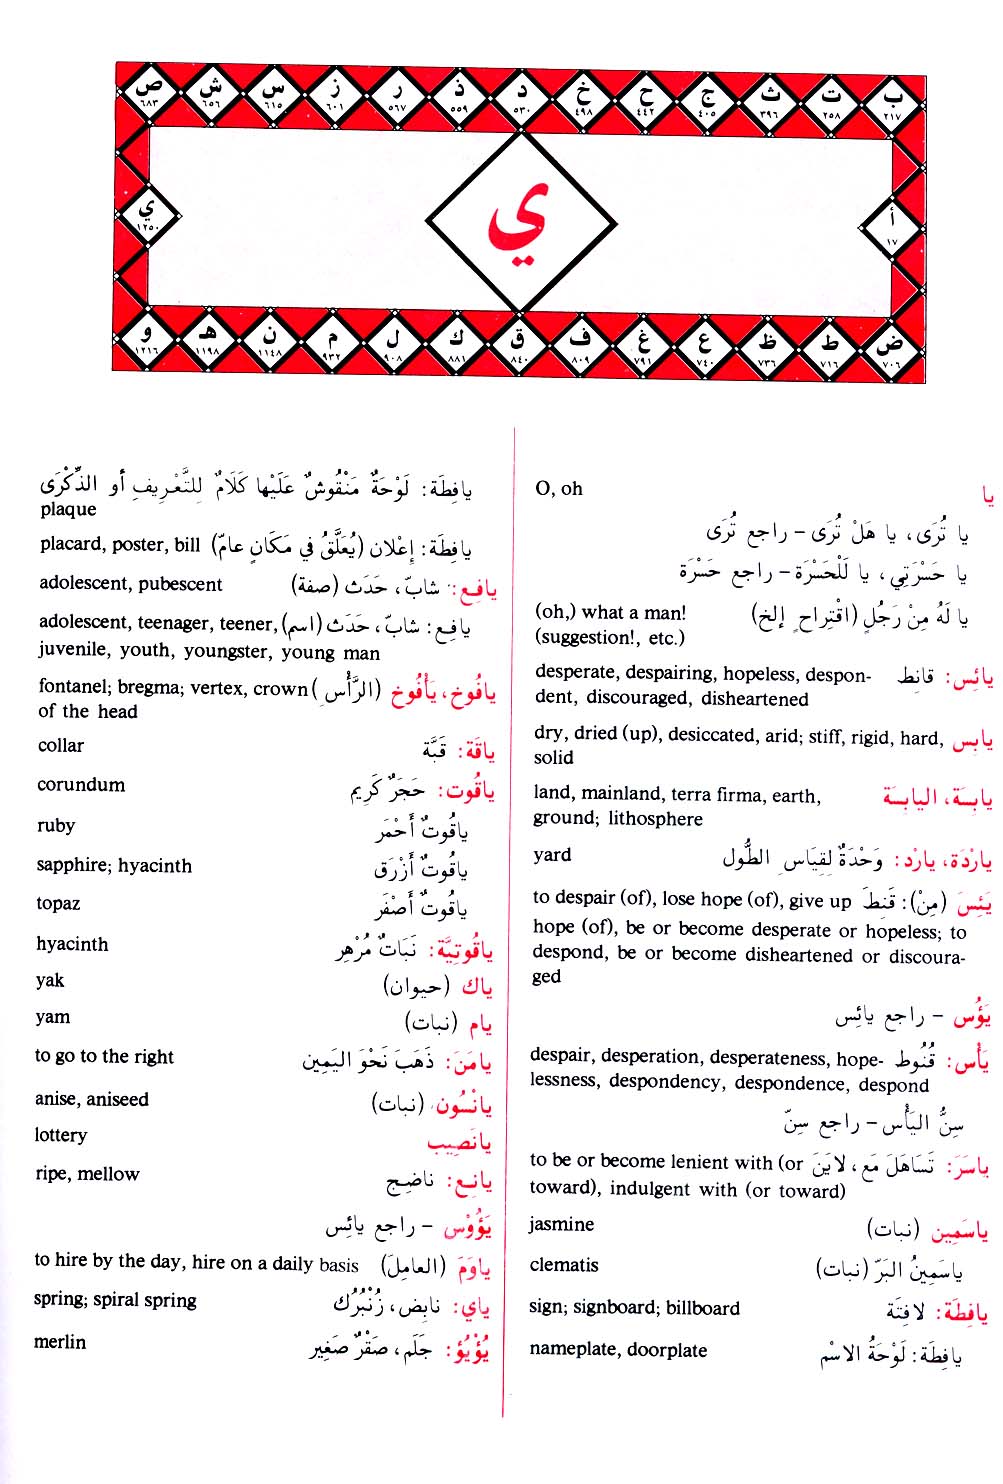 ب ت ث ج ح خ د ذ ر ز س ش ص
٢١٧ ٢٥٨ ٣٩٦ ٤٠٥ ٤٤٢ ٤٩٨ ٥٣٠ ٥٥٩ ٥٦٧ ٦٠١ ٦١٥ ٦٥٦ ٦٨٣
أ ي ي
١٧ ١٢٥٠
ض ط ظ ع غ ف ق ك ل م ن هـ و
٧٠٦ ٧١٦ ٧٣٦ ٧٤٠ ٧٩١ ٨٠٩ ٨٤٠ ٨٨١ ٩٠٨ ٩٣٢ ١١٤٨ ١١٩٨ ١٢١٦
يا O, oh
يا تُرَى، يا هَلْ تُرَى - راجع تُرَى
يا حَسْرَتِي، يا لَلْحَسْرَة - راجع حَسْرَة
يا لَهُ مِنْ رَجُلٍ (اقْتِراحٍ إلخ) (oh,) what a man!
(suggestion!, etc.)
يائِس: قانِط desperate, despairing, hopeless, despon-
dent, discouraged, disheartened
يابِس dry, dried (up), desiccated, arid; stiff, rigid, hard,
solid
يابِسَة، اليابِسَة land, mainland, terra firma, earth,
ground; lithosphere
يارْدَة، يارْد: وَحْدَةٌ لِقِيَاسِ الطُّول yard
يَئِسَ (مِنْ): قَنِطَ to despair (of), lose hope (of), give up
hope (of), be or become desperate or hopeless; to
despond, be or become disheartened or discoura-
ged
يَؤُس - راجع يائِس
يَأْس: قُنُوط despair, desperation, desperateness, hope-
lessness, despondency, despondence, despond
سِنُّ اليَأْس - راجع سِنّ
ياسَرَ: تَسَاهَلَ مَع، لايَنَ to be or become lenient with (or
toward), indulgent with (or toward)
ياسَمِين (نبات) jasmine
ياسَمِينُ البَرّ (نبات) clematis
يافِطَة: لافِتَة sign; signboard; billboard
يافِطَة: لَوْحَةُ الاسْم nameplate, doorplate
يافِطَة: لَوْحَةٌ مَنْقُوشٌ عَلَيْها كَلَامٌ لِلتَّعْرِيفِ أو الذِّكْرَى
plaque
يافِطَة: إعْلان (يُعَلَّقُ في مَكَانٍ عامّ) placard, poster, bill
يافِع: شابّ، حَدَث (صفة) adolescent, pubescent
يافِع: شابّ، حَدَث (اسم) adolescent, teenager, teener,
juvenile, youth, youngster, young man
يافُوخ، يَأْفُوخ (الرَّأْس) fontanel; bregma; vertex, crown
of the head
ياقَة: قَبَّة collar
ياقُوت: حَجَرٌ كَرِيم corundum
ياقُوتٌ أَحْمَر ruby
ياقُوتٌ أَزْرَق sapphire; hyacinth
ياقُوتٌ أَصْفَر topaz
ياقُوتِيَّة: نَبَاتٌ مُزْهِر hyacinth
ياك (حيوان) yak
يام (نبات) yam
يامَنَ: ذَهَبَ نَحْوَ اليَمِين to go to the right
يانْسُون (نبات) anise, aniseed
يانَصِيب lottery
يانِع: ناضِج ripe, mellow
يَؤُوس - راجع يائِس
ياوَمَ (العامِلَ) to hire by the day, hire on a daily basis
ياي: نابِض، زُنْبُرُك spring; spiral spring
يُؤْيُؤ: جَلَم، صَقْرٌ صَغِير merlin